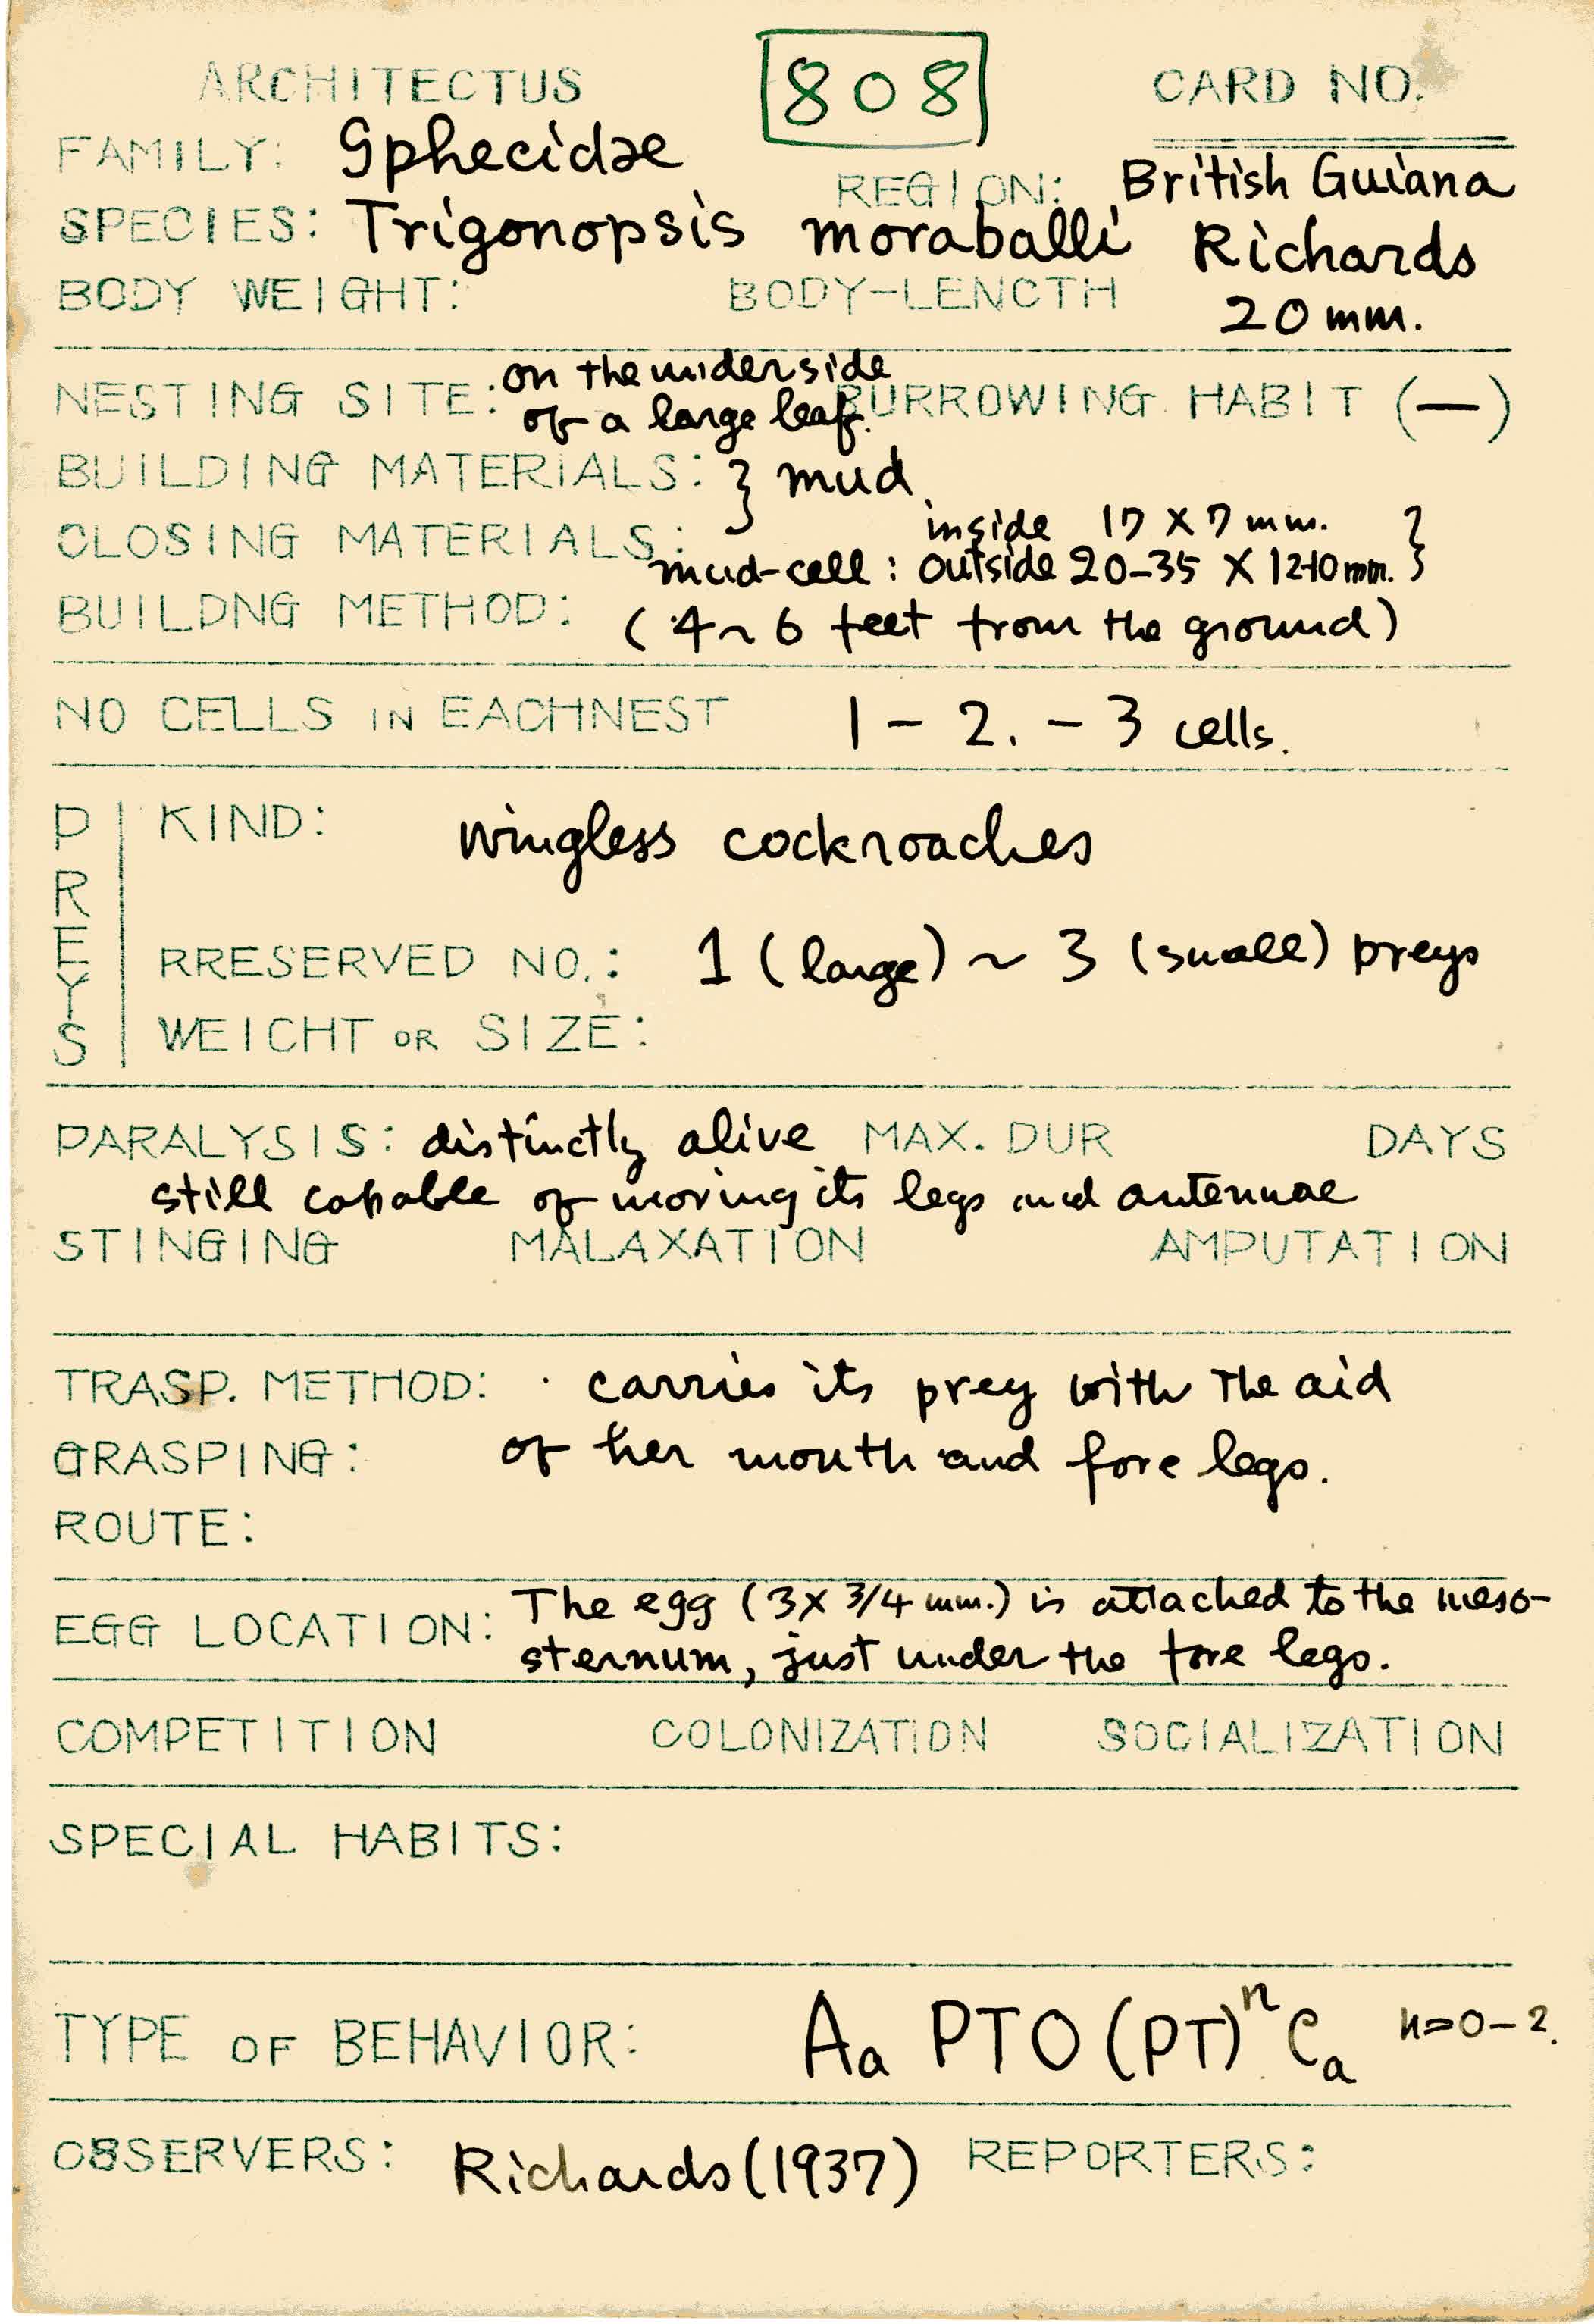 ARCHITECTUS 808 CARD NO.
FAMILY: Sphecidae REGION: British Guiana
SPECIES: Trigonopsis moraballi Richards
BODY WEIGHT: BODY-LENCTH 20 mm.
NESTING SITE: on the underside
of a large leaf. BURROWING HABIT (—)
BUILDING MATERIALS: } mud
CLOSING MATERIALS: inside 17 X 7 mm. }
mud-cell: outside 20-35 X 12-10 mm. }
BUILDNG METHOD: (4~6 feet from the ground)
NO CELLS IN EACHNEST 1 - 2. - 3 cells.
PREYS
KIND: wingless cockroaches
RRESERVED NO.: 1 (large) ~ 3 (small) preys
WEICHT OR SIZE:
PARALYSIS: distinctly alive MAX. DUR DAYS
still capable of moving its legs and antennae
STINGING MALAXATION AMPUTATION
TRASP. METHOD: · carries its prey with the aid
GRASPING: of her mouth and fore legs.
ROUTE:
The egg (3X 3/4 mm.) is attached to the meso-
EGG LOCATION: sternum, just under the fore legs.
COMPETITION COLONIZATION SOCIALIZATION
SPECIAL HABITS:
TYPE OF BEHAVIOR: Aa PTO (PT)ⁿ Ca n=0-2.
OBSERVERS: Richards (1937) REPORTERS: